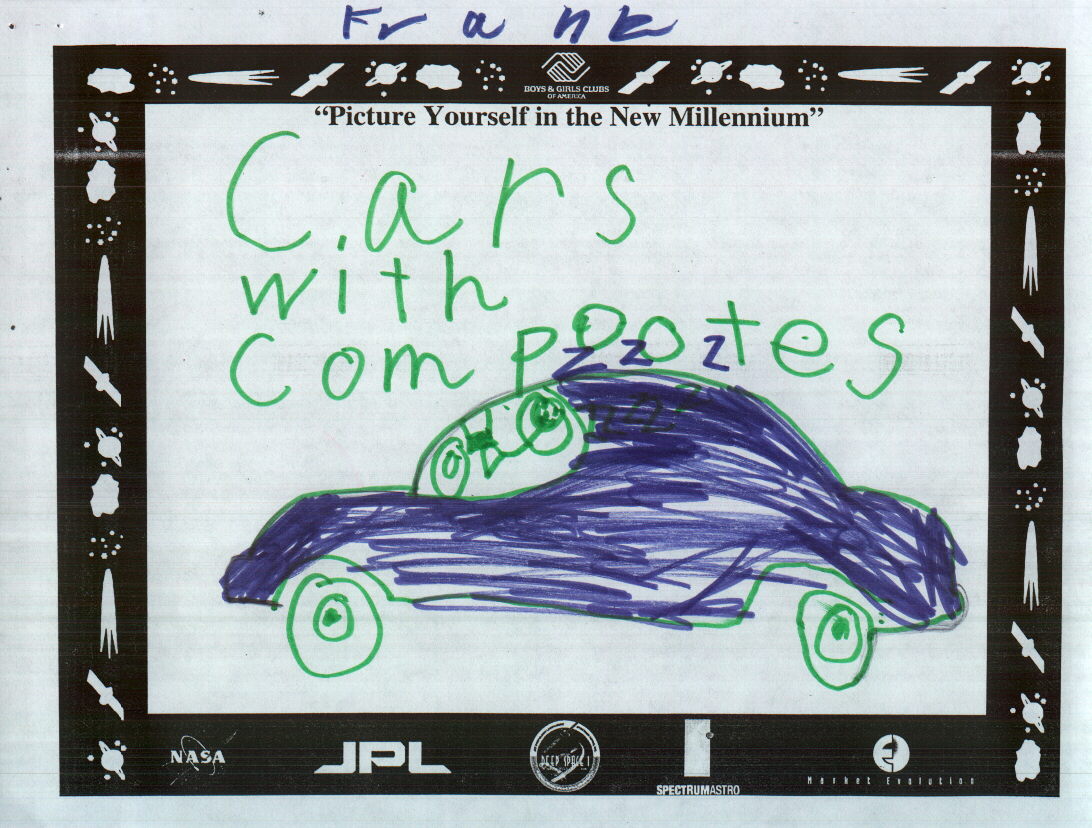 Frank
BOYS & GIRLS CLUBS
OF AMERICA
“Picture Yourself in the New Millennium”
Cars
with
compootes
z z z
zzz
NASA
JPL
DEEP SPACE 1
SPECTRUMASTRO
Market Evolution